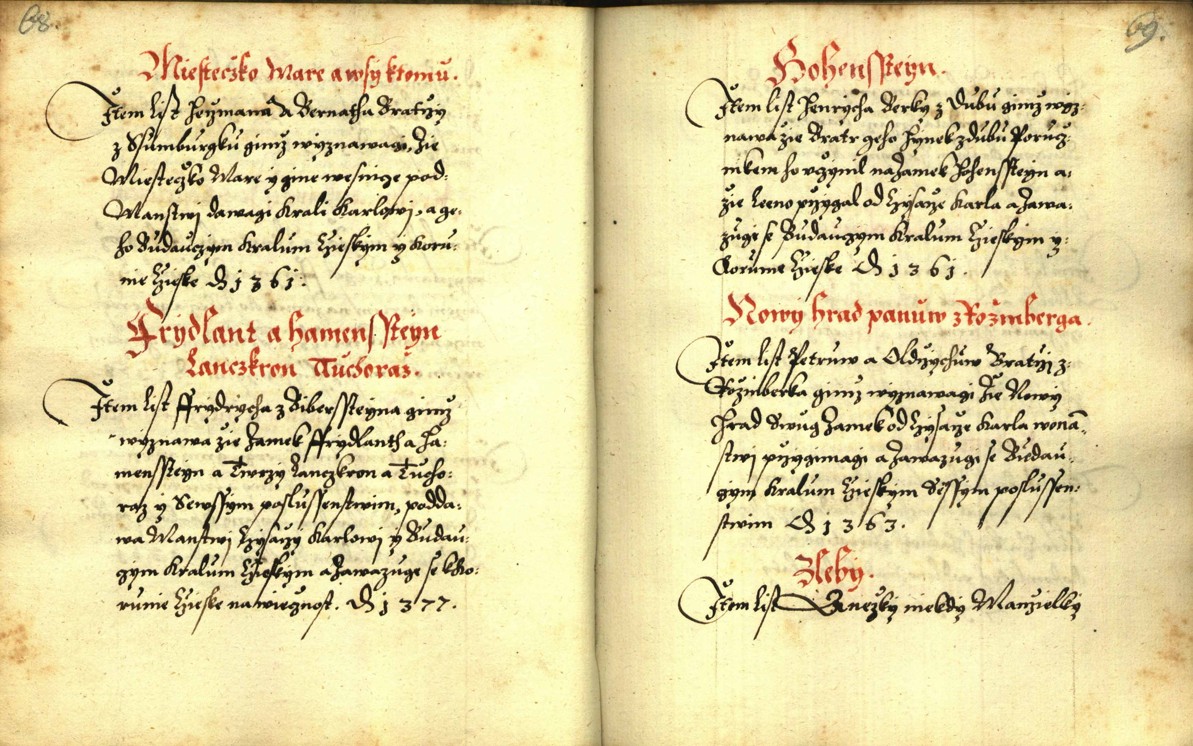 68.
Miesteczko Mare a wsy ktomu.
Item list Heymana A Bernatha Bratrzy
z Ssumburgku gimz wyznawagi, zie
Miesteczko Mare y gine wesnicze pod:
Manstwj dawagi Krali Karlowj, a ge:
ho Budauczym Kralum Czieskym y Koru:
nie Czieske D 1361.
Frydlant a hamensſteyn
Lanczkron Tuchoraz.
Item list ffrydrycha z Bibersſteyna gimz
wyznawa zie Zamek ffrydlanth a Ha:
mensſteyn a Twrzy Lanczkron a Tucho:
raz y Sewssym poslussenstwim, podda:
wa Manstwj Czysarzy Karlowj y Budau:
gym Kralum Czieskym a Zawazuge se kKo:
runie Czieske na wiecznost. D 1377.
69.
Hohensſteyn.
Item list Henrycha Berky z Dubu gimz wyz:
nawa zie Bratr geho Hynek z Dubu Porucz:
nikem ho uczynil na Zamek Hohensſteyn a:
zie Leeno przygal od Czysarze Karla a Zawa:
zugi se Budauczym Kralum Czieskym y:
Corunie Czieske D 1361.
Nowy hrad panuw z Rozmberga.
Item list Petruw a Oldrzychuw Bratrzj z:
Rozmberka gimz wyznawagi zie Nowy
Hrad Swug Zamek od Czysarze Karla w Ma:
stwj przygimagi a Zawazugi se Budau:
gym Kralum Czieskym Sessym poslussen:
stwim D 1363.
Zleby.
Item list Anezky niekdy Manzielky